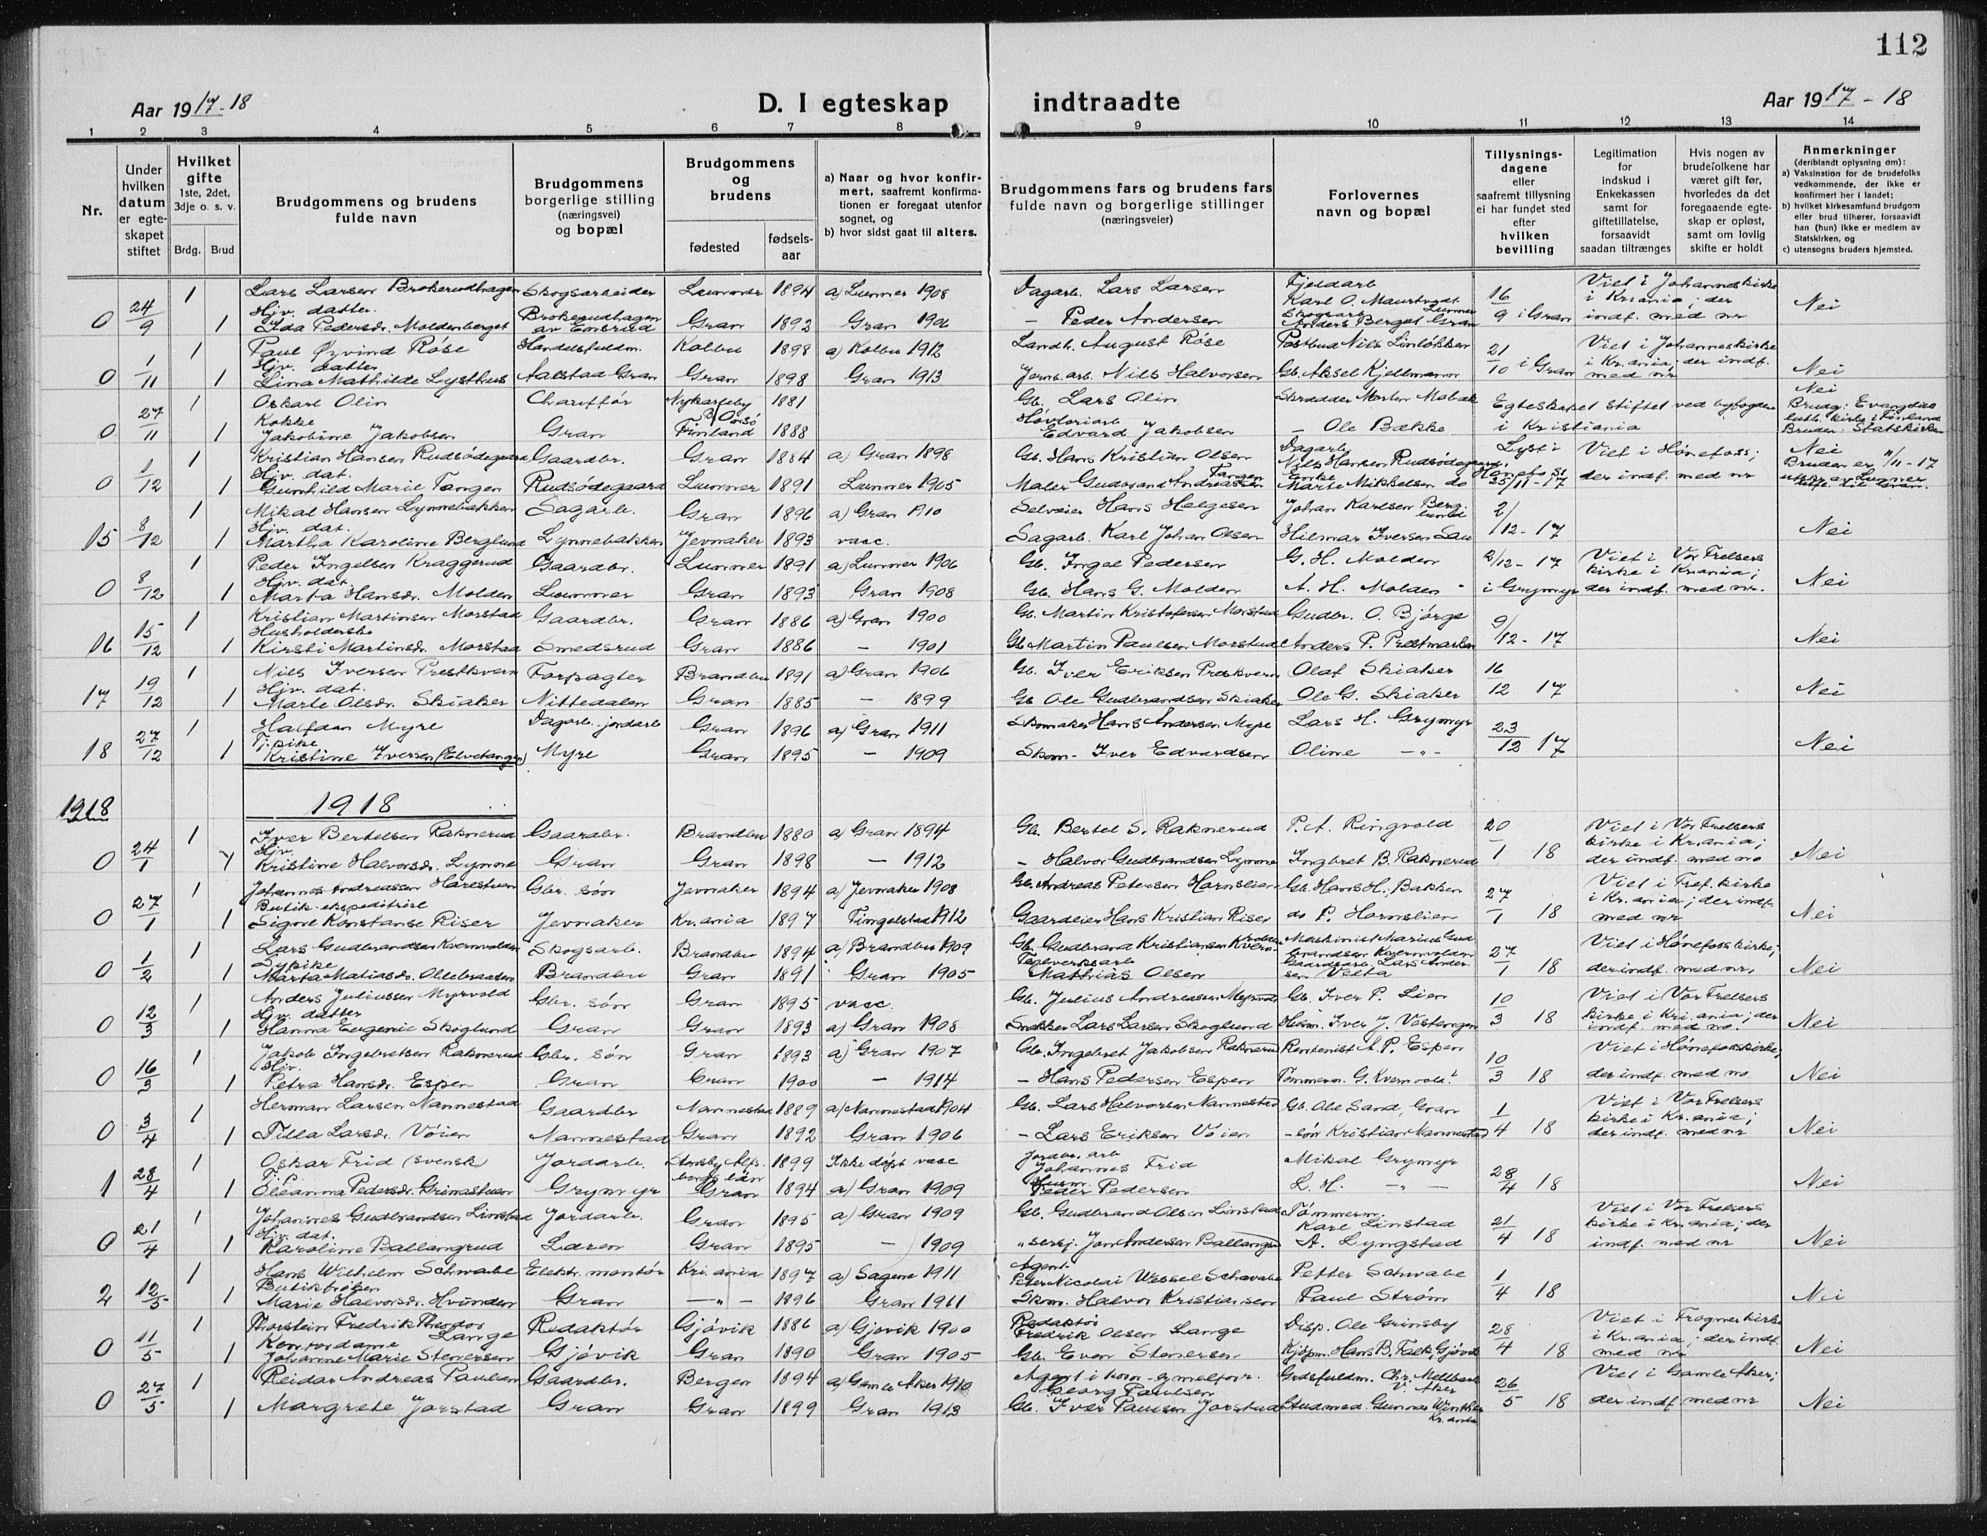 112
Aar 1917-18
D. I egteskap indtraadte
Aar 1917-18
1 2 3 4 5 6 7 8 9 10 11 12 13 14
Nr.
Under hvilken datum er egte-skapet stiftet
Hvilket gifte
1ste, 2det, 3dje o. s. v.
Brdg. Brud
Brudgommens og brudens fulde navn
Brudgommens borgerlige stilling (næringsvei) og bopæl
Brudgommens og brudens
fødested
fødsels-aar
a) Naar og hvor konfir-mert, saafremt konfirma-tionen er foregaat utenfor sognet, og
b) hvor sidst gaat til alters.
Brudgommens fars og brudens fars fulde navn og borgerlige stillinger (næringsveier)
Forlovernes navn og bopæl
Tillysnings-dagene eller saafremt tillysning ei har fundet sted efter hvilken bevilling
Legitimation for indskud i Enkekassen samt for giftetillatelse, forsaavidt saadan tiltrænges
Hvis nogen av brudefolkene har været gift før, hvorledes da det foregaaende egte-skap er opløst, samt om lovlig skifte er holdt
Anmerkninger
(deriblandt oplysning om):
a) Vaksination for de brudefolks vedkommende, der ikke er konfirmert her i landet;
b) hvilket kirkesamfund brudgom eller brud tilhører, forsaavidt han (hun) ikke er medlem av Statskirken, og
c) utensogns bruders hjemsted.
1 Lars Larsen Brokerudhagen Skogsarbeider Lunner 1894 a) Lunner 1908 Dagarb. Lars Larsen Fjeldarb Karl O. 16/9 i Gran Viet i Johanneskirke i Kr.ania; der indf. med nr Nei
0 24/9 1 Hjv. datter Ida Pedersdr. Moldenberget Brokerudhagen av Gran 1892 Gran 1906 – Peder Andersen Skogsarb. Anders Berget Gran
1 Paul Øyvind Røse Handelsfuldm. Kolbu 1898 a) Kolbu 1912 Landh. August Røse Postbud Nils 21/10 i Gran Viet i Johanneskirke i Kr.ania; der indf. med nr Nei
0 1/11 1 Hjv. datter Lina Mathilde Lysthus Aalstad Gran Gran 1898 Gran 1913 Jernb. arb. Nils Halvorsen Gb. Aksel Kjellmann
1 Oskar Olin Chauffør Nykarleby 1881 Gb. Lars Olin Skrædder Morten Egteskapet stiftet ved byfogden i Kristiania Nei Brudg: Evangelisk luth. kirke i Finland
0 27/11 1 Kokke Jakobine Jakobsen Gran Finland 1888 Høvleriarb Edvard Jakobsen – Ole Bække Bruden: Statskirken
1 Kristian Hansen Rudsødegaard Gaardbr. Gran 1884 a) Gran 1898 Gb. Hans Kristian Olsen Dagarb. Niels Hansen Rudsødegaard Lyst i Hønefoss 25/11-17 Viet i Hønefoss; der indf. med nr Nei
0 1/12 1 Hjv. dat. Gunhild Marie Tangen Rudsødegaard Lunner 1891 Lunner 1905 Maler Gudbrand Andreassen Tangen Enke Marte Mikkelsen do Bruden er 11/11-17
1 Mikal Hansen Lynnebakken Sagarb. Gran 1896 a) Gran 1910 Selveier Hans Helgesen Johan Karlsen Berglund 2/12-17 Nei
15 8/12 1 Hjv. dat. Martha Karoline Berglund Lynnebakken Jevnaker 1893 vasc. Sagarb. Karl Johan Olsen Hilmar Iversen
1 Peder Ingelsen Kraggerud Gaardbr. Lunner 1891 a) Lunner 1906 Gb. Ingel Pedersen G. H. Molden 2/12-17 i Grymyr Viet i Vor Frelsers kirke i Kr.ania; der indf. med nr. Nei
0 8/12 1 Hjv. dat. Marta Hansdr. Molden Lunner Gran 1893 Gran 1908 Gb. Hans G. Molden A. H. Molden
1 Kristian Martinsen Morstad Gaardbr. Gran 1886 a) Gran 1900 Gb. Martin Kristofersen Morstad Gudbr. O. Bjørge 9/12-17 Nei
16 15/12 1 Husholderske Kirsti Martinsdr. Morstad Smedsrud Gran 1886 – 1901 Gb. Martin Paulsen Morstad Anders P. Præstmarken
1 Nils Iversen Prestkvern Forpagter Brandbu 1891 a) Gran 1906 Gb. Iver Eriksen Prestkvern Olaf Skiaker 16/12 17 Nei
17 19/12 1 Hjv. dat. Marte Olsdr. Skiaker Nittedalen Gran 1885 – 1899 Gb Ole Gudbrandsen Skiaker Ole G. Skiaker
1 Halfdan Myre Dagarb. jordarb Gran 1896 a) Gran 1911 Skomaker Hans Andersen Myre Lars H. Grymyr 23/12 17 Nei
18 27/12 1 Tj. pike Kristine Iversen (Elvetangen) Myre Gran 1895 – 1909 Skom. Iver Edvardsen Oline –"–
1918 1918
1 Iver Bertelsen Raknerud Gaardbr. Brandbu 1880 a) Gran 1894 Gb. Bertel S. Raknerud P. A. Ringvold 20/1 18 Viet i Vor Frelsers kirke i Kr.ania; der indf. med no Nei
0 24/1 1 Hjv. Kristine Halvorsdr. Lynne Gran Gran 1898 – 1912 – Halvor Gudbrandsen Lynne Ingbret B. Raknerud
1 Johannes Andreassen Harestuen Gbr. søn Jevnaker 1894 a) Jevnaker 1908 Gb. Andreas Petersen Gb. Hans H. Bakken 27/1 18 Viet i Tref. kirke i Kr.ania; der indf. med nr Nei
0 27/1 1 Butik-ekspeditrise Signe Konstanse Riser Jevnaker Kr.ania 1897 Tingelstad 1912 Gaardeier Hans Kristian Riser do P.
1 Lars Gudbrandsen Kvernvolden Skogsarb. Brandbu 1894 a) Brandbu 1909 Gb. Gudbrand Kristiansen Kvernvolden Maskinist Marius Gudbrandsen Kvernvolden 27/1 18 Viet i Hønefoss kirke; der indf. med nr, Nei
0 1/2 1 Marta Matiasdr. Ollebraaten Brandbu Gran 1891 Gran 1905 Mathias Olsen Gaardsarb. Lars Andersen Velta
1 Anders Juliussen Myrvold Gbr. søn Gran 1895 vasc. Gb. Julius Andreassen Myrvold Gb. Iver P. Lien 10/3 18 Viet i Vor Frelsers kirke i Kr.ania; der indf. med no. Nei
0 12/3 1 Hjv. datter Hanna Eugenie Skoglund Gran Gran 1893 a) Gran 1908 Snekker Lars Larsen Skoglund Iver J. Vestengen
1 Jakob Ingebretsen Raknerud Gbr. søn Gran 1893 a) Gran 1907 Gb. Ingebret Jakobsen Raknerud Rentenist A. P. Espen 10/3 18 Viet i Hønefosskirke, der indf. med no Nei
0 16/3 1 Hjv. Petra Hansdr. Espen Gran Gran 1900 – 1914 – Hans Pedersen Espen Tømmerm. G. Kvernvold
1 Herman Larsen Nannestad Gaardbr Nannestad 1889 a) Nannestad 1904 Gb. Lars Halvorsen Nannestad Gb. Ole Sand, Gran 1/4 18 Viet i Vor Frelsers kirke i Kr.ania; der indf. med nr Nei
0 3/4 1 Tilla Larsdr. Vøien Nannestad Gran 1892 Gran 1906 – Lars Eriksen Vøien – søn Kristian Nannestad
1 Oskar Frid (svensk) Jordarb. 1899 Ikke døpt vasc Jordbr. arb Johannes Frid Mikal Grymyr 28/4 18 Nei
1 28/4 1 Eleanna Pedersdr. Grimastuen Grymyr Gran 1894 a) Gran 1909 Husm. Peder Pedersen L. H. –"–
1 Johannes Gudbrandsen Linstad Jordarb. Gran 1895 a) Gran 1909 Gb. Gudbrand Olsen Linstad Tømmerm. Karl Linstad 21/4 18 Viet i Vor Frelsers kirke i Kr.ania; der indf. med nr Nei
0 21/4 1 Hjv. dat. Karoline Ballangrud Læren Gran 1895 – 1909 Jon Andersen Ballangrud A. Lyngstad
1 Hans Wilhelm Schwabe Elektr. montør Kr.ania 1897 a) Sagene 1911 Agent Peter Nicolai Wessel Schwabe Petter Schwabe 1/4 18 Nei
2 12/5 1 Butikfrøken Marie Halvorsdr. Hvinden Gran –"– 1896 Gran 1911 Skom. Halvor Kristiansen Paul Strøm
1 Thorstein Fredrik Theodor Lange Redaktør Gjøvik 1886 a) Gjøvik 1900 Redaktør Fredrik Olsen Lange Disp. Ole Grinsby 28/4 18 Viet i Frognerkirke i Kr.ania; der indf. med nr Nei
0 11/5 1 Kontordame Johanne Marie Stenersen Gjøvik Gran 1890 Gran 1905 Gb. Even Stenersen Kjøpm. Hans B. Falk Gjøvik
1 Reidar Andreas Paulsen Gaardbr. Bergen 1894 a) Gamle Aker 1910 Agent i korn- og melforr. Georg Paulsen Grosfuldm. Chr. V. Aker 26/5 18 Viet i Gamle Aker; der indf. med nr Nei
0 27/5 1 Margrete Jorstad Gran Gran 1899 Gran 1913 Gb. Iver Paulsen Jorstad Stud med Gunnar Winther Kr.ania